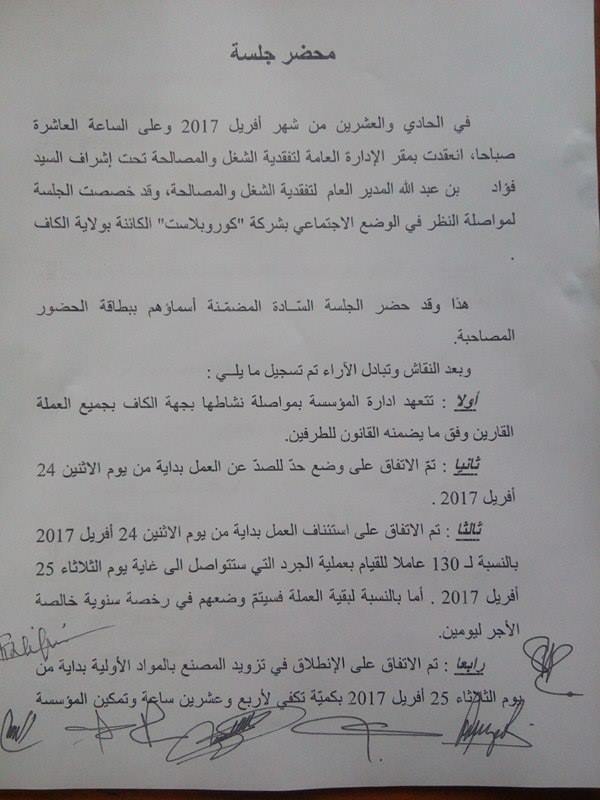 محضر جلسة
في الحادي والعشرين من شهر أفريل 2017 وعلى الساعة العاشرة
صباحا، انعقدت بمقر الإدارة العامة لتفقدية الشغل والمصالحة تحت إشراف السيد
فؤاد بن عبد الله المدير العام لتفقدية الشغل والمصالحة، وقد خصصت الجلسة
لمواصلة النظر في الوضع الاجتماعي بشركة "كوروبلاست" الكائنة بولاية الكاف
.
هذا وقد حضر الجلسة السّادة المضمّنة أسماؤهم ببطاقة الحضور
المصاحبة.
وبعد النقاش وتبادل الآراء تم تسجيل ما يلـي :
أولا : تتعهد ادارة المؤسسة بمواصلة نشاطها بجهة الكاف بجميع العملة
القارين وفق ما يضمنه القانون للطرفين.
ثانيا : تمّ الاتفاق على وضع حدّ للصدّ عن العمل بداية من يوم الاثنين 24
أفريل 2017 .
ثالثا : تم الاتفاق على استئناف العمل بداية من يوم الاثنين 24 أفريل 2017
بالنسبة لـ 130 عاملا للقيام بعملية الجرد التي ستتواصل الى غاية يوم الثلاثاء 25
أفريل 2017 . أما بالنسبة لبقية العملة فسيتمّ وضعهم في رخصة سنوية خالصة
الأجر ليومين.
رابعا : تم الاتفاق على الإنطلاق في تزويد المصنع بالمواد الأولية بداية من
يوم الثلاثاء 25 أفريل 2017 بكميّة تكفي لأربع وعشرين ساعة وتمكين المؤسسة